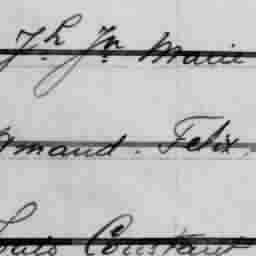 Jh Jn Marie
Amand. Felix.
Louis Constant